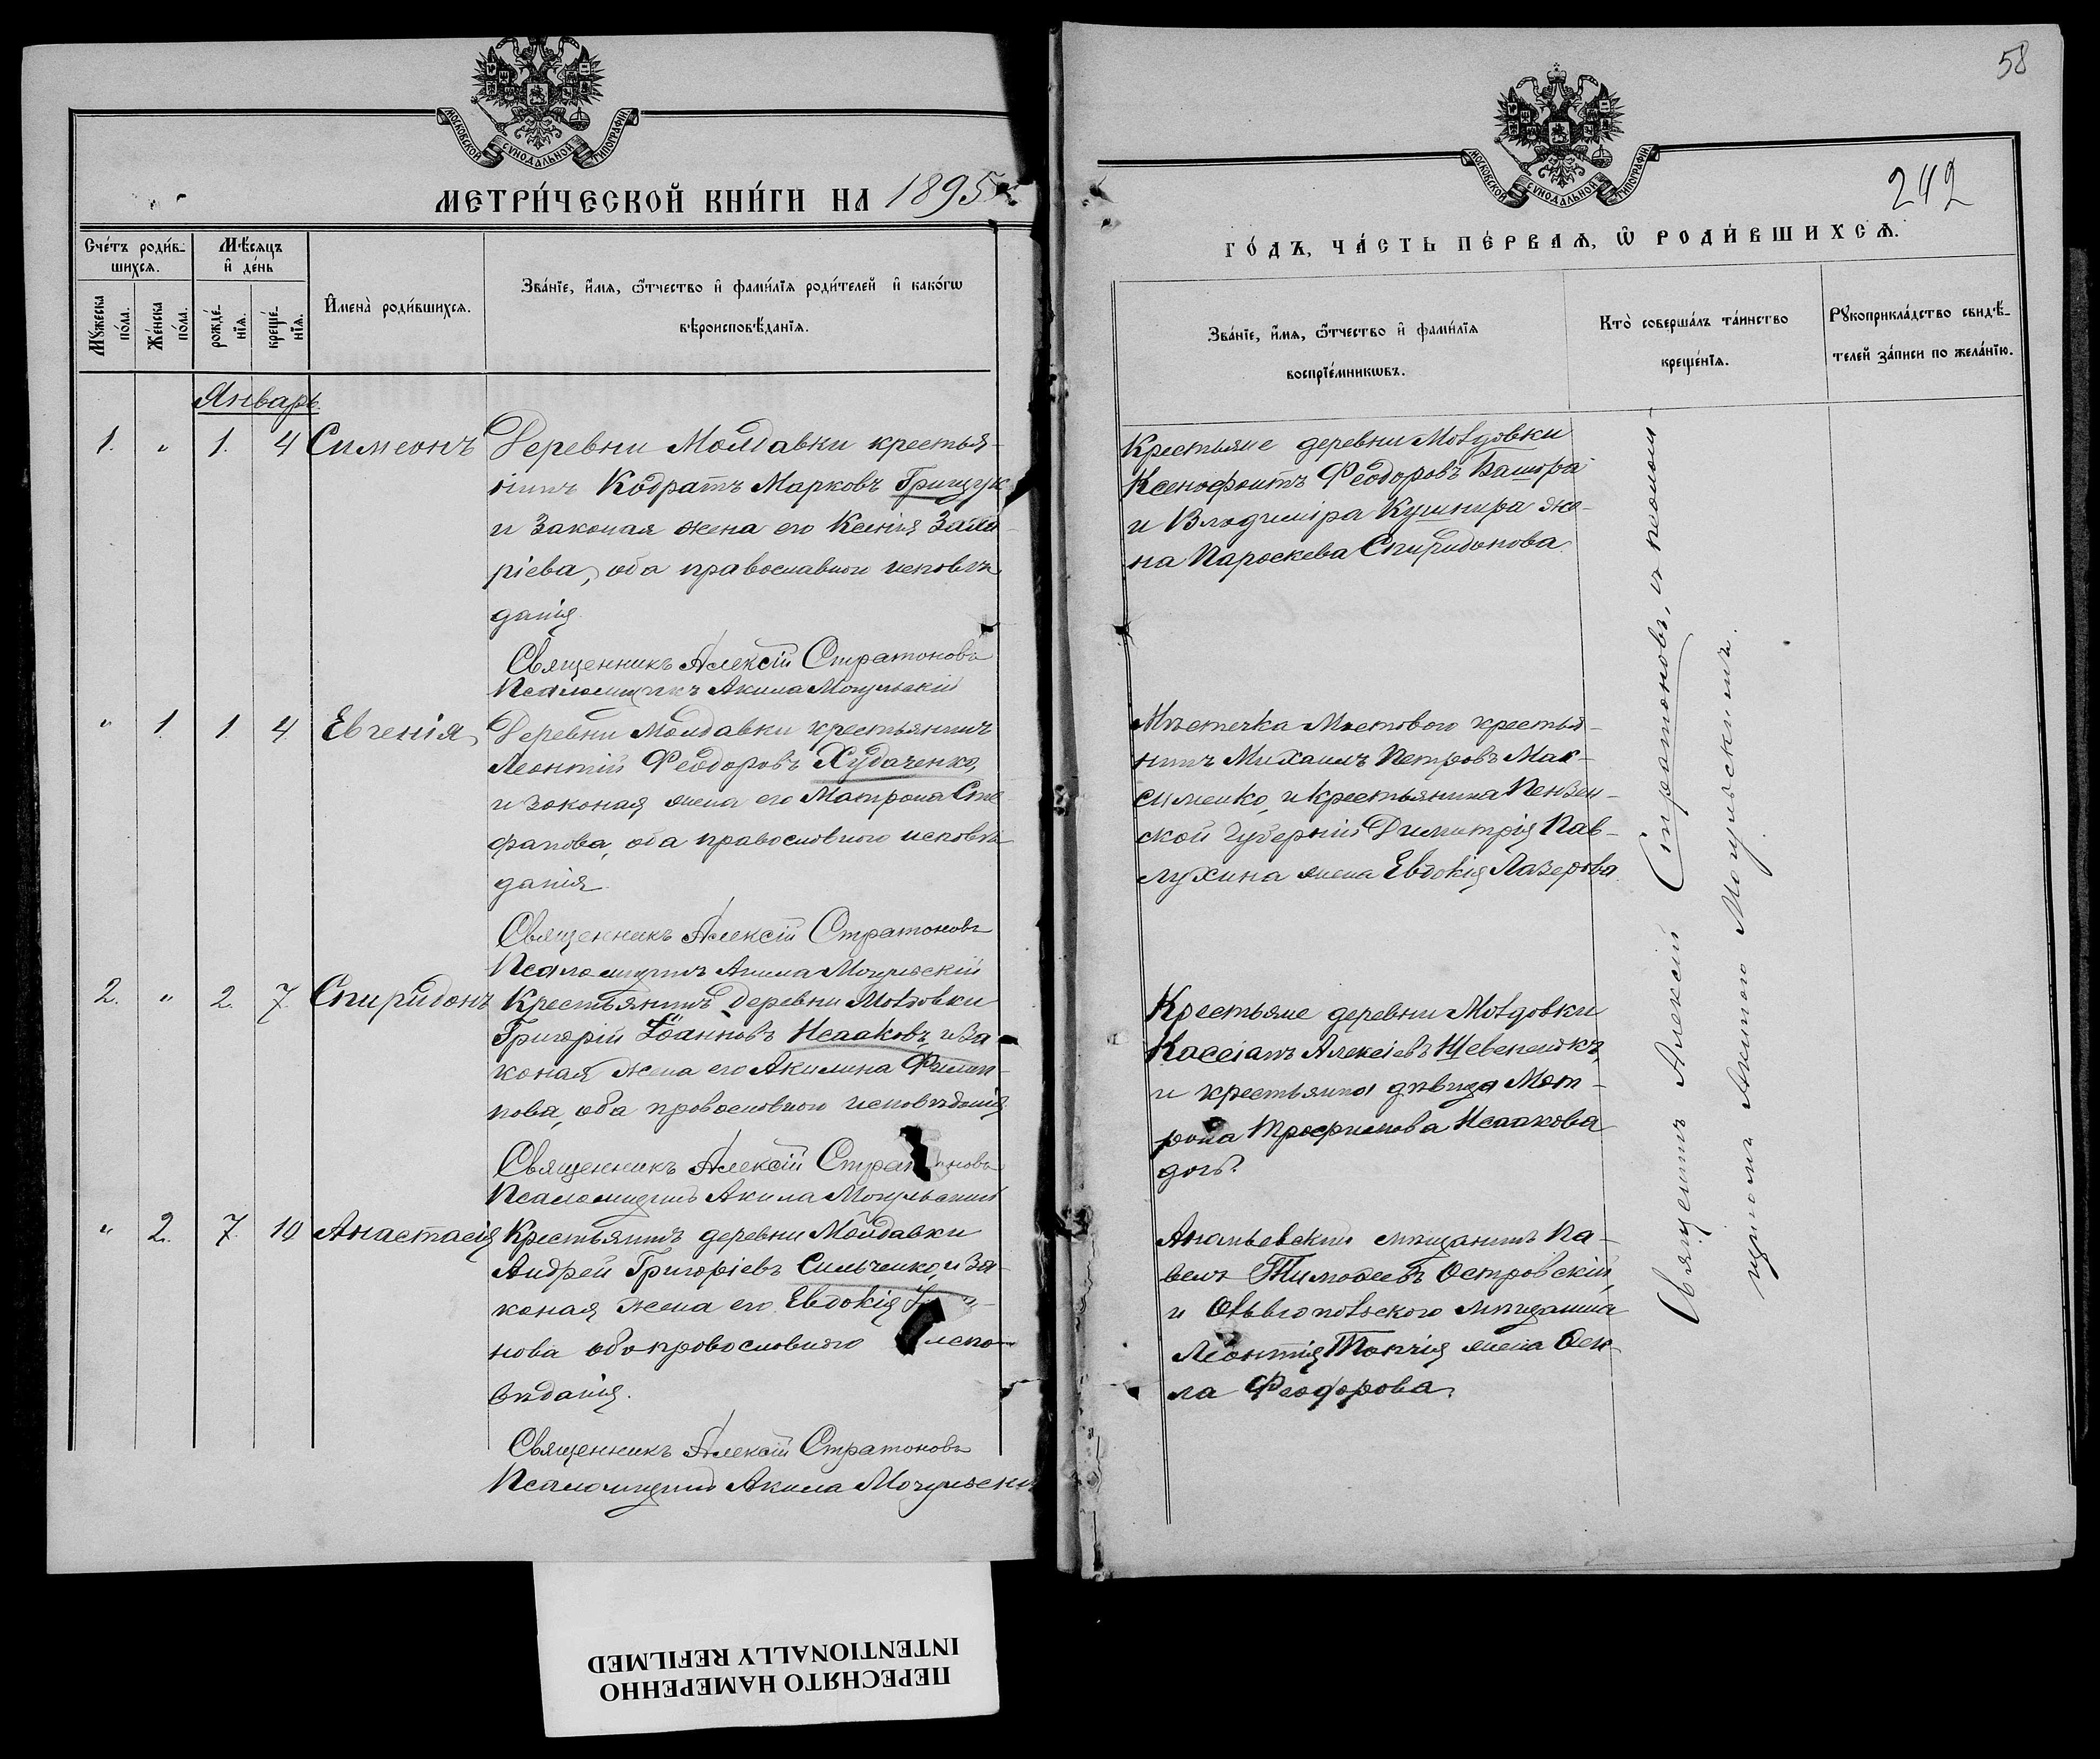 МОСКОВСКОЙ СѴНОДАЛЬНОЙ ТИПОГРАФІИ
МЕТРИ́ЧЕСКОЙ КНИ́ГИ НА 1895
Сче́тъ роди́в-
шихсѧ.
Мѣ́сѧцъ
и҆ де́нь
Мꙋ́жеска
по́ла.
Же́нска
по́ла.
рожде́-
нїѧ.
креще́-
нїѧ.
И҆мена̀ роди́вшихсѧ.
Зва́нїе, и҆́мѧ, ѻ҆́тчество и҆ фами́лїѧ роди́телей и҆ како́гѡ
вѣроисповѣ́данїѧ.
Январь
1. " 1. 4 Симеонъ Деревни Молдавки крестья-
нинъ Кодратъ Марковъ Грищук
и законая жена его Ксенія Заха-
ріева, оба православного исповѣ
данія.
Священникъ Алексій Стратоновъ
Псаломщикъ Акила Могульскій
" 1. 1. 4. Евгенія Деревни Молдавки крестьянинъ
Леонтій Феодоровъ Худаченко,
и законая жена его Матрона Сте
фанова, оба православного исповѣ
данія.
Священникъ Алексій Стратоновъ
Псаломщикъ Акила Могульскій
2. " 2. 7. Спиридонъ Крестьянинъ деревни Молдовки
Григорій Іоанновъ Исааковъ, и за
коная жена его Акилина Филип-
пова, оба православного исповѣданія
Священникъ Алексій Стратоновъ
Псаломщикъ Акила Могульскій
" 2. 7. 10 Анастасія Крестьянинъ деревни Молдавки
Андрей Григоріевъ Сильченко, и за-
коная жена его Евдокія
нова оба православного испо-
вѣданія.
Священникъ Алексій Стратоновъ
Псаломщикъ Акила Могульскі
58
МОСКОВСКОЙ СѴНОДАЛЬНОЙ ТИПОГРАФІИ
242
ГО́ДЪ, ЧА́СТЬ ПЕ́РВАѦ, Ѡ҆ РОДИ́ВШИХСѦ.
Зва́нїе, и҆́мѧ, ѻ҆́тчество и҆ фами́лїѧ
воспрїе́мникѡвъ.
Кто̀ соверша́лъ та́инство
креще́нїѧ.
Рꙋкоприкла́дство свидѣ́-
телей за́писи по жела́нїю.
Крестьяне деревни Молдовки
Ксенофонтъ Феодоровъ Башора
и Владиміра Кушнира же-
на Пароскева Спиридонова.
Мѣстечка Мостового крестья-
нинъ Михаилъ Петровъ Мак-
сименко, и крестьянина Пензен-
ской губерніи Димитрія Пав-
лухина жена Евдокія Лазерова
Крестьяне деревни Молдовки
Кассіанъ Алексіевъ
и крестьянка дѣвица Мат-
рона Трофимова Исаакова
дочь.
Ананьевскій мѣщанинъ Па-
велъ Тимофеевъ Островскій,
и Ольвіопольского мѣщанина
Леонтія жена Фек-
ла Феодорова.
Священникъ Алексій Стратоновъ, съ псалом-
щикомъ Акилою Могульскимъ.
ПЕРЕСНЯТО НАМЕРЕННО
INTENTIONALLY REFILMED